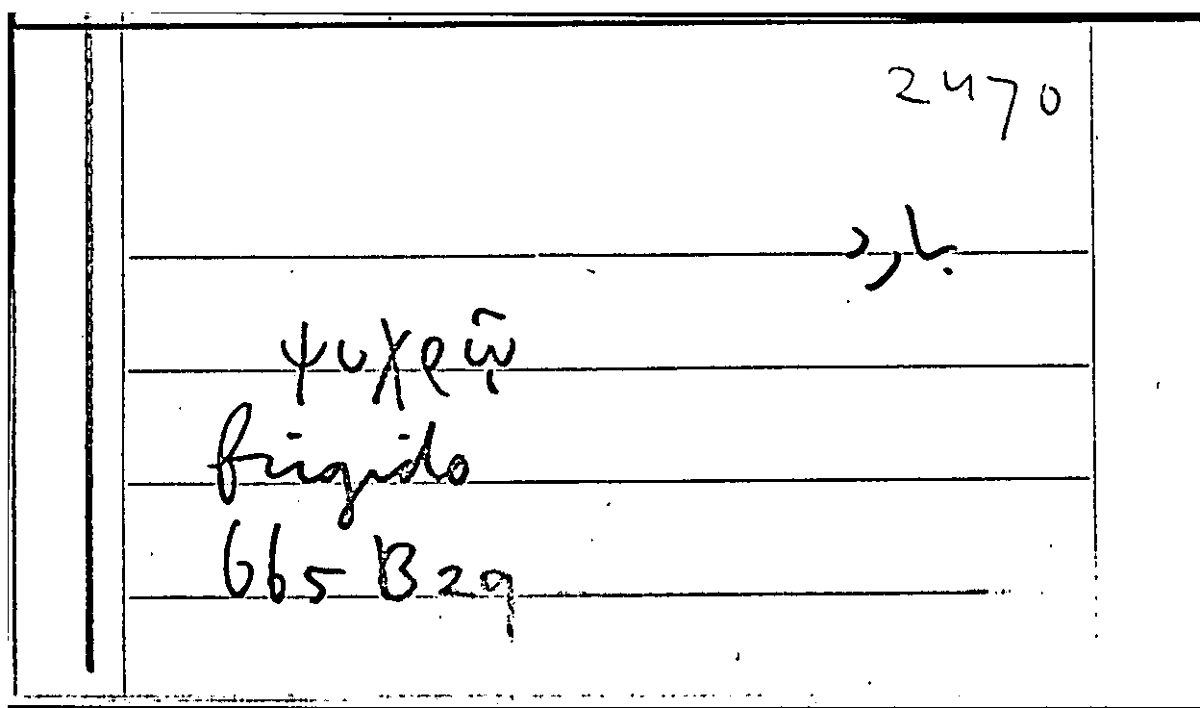 2470
بارد
ψυχρῷ
frigido
665 B 29